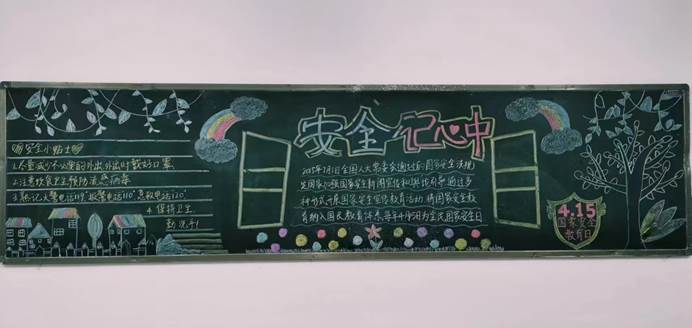 安全记心中
安全小贴士
1.尽量减少不必要的外出,外出时戴好口罩
2.注意饮食卫生预防流感病毒
3.熟记火警电话119 报警电话110 急救电话120
4.保持卫生
勤洗手!
2015年7月1日全国人大常委会通过的国家安全法规
定国家加强国家安全新闻宣传和舆论引导,通过多
种形式开展国家安全宣传教育活动,将国家安全教
育纳入国民教育体系,每年4月15日为全民国家安全日
4.15
国家安全
教育日